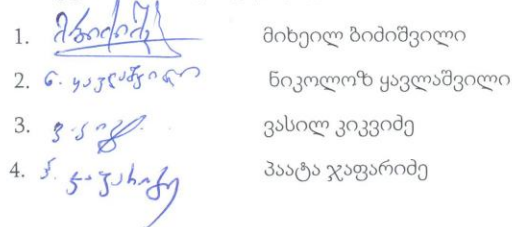 1. მიხეილ ბიძიშვილი
2. ნ. ყავლაშვილი ნიკოლოზ ყავლაშვილი
3. ვასილ კიკვიძე
4. პ. ჯაფარიძე პაატა ჯაფარიძე